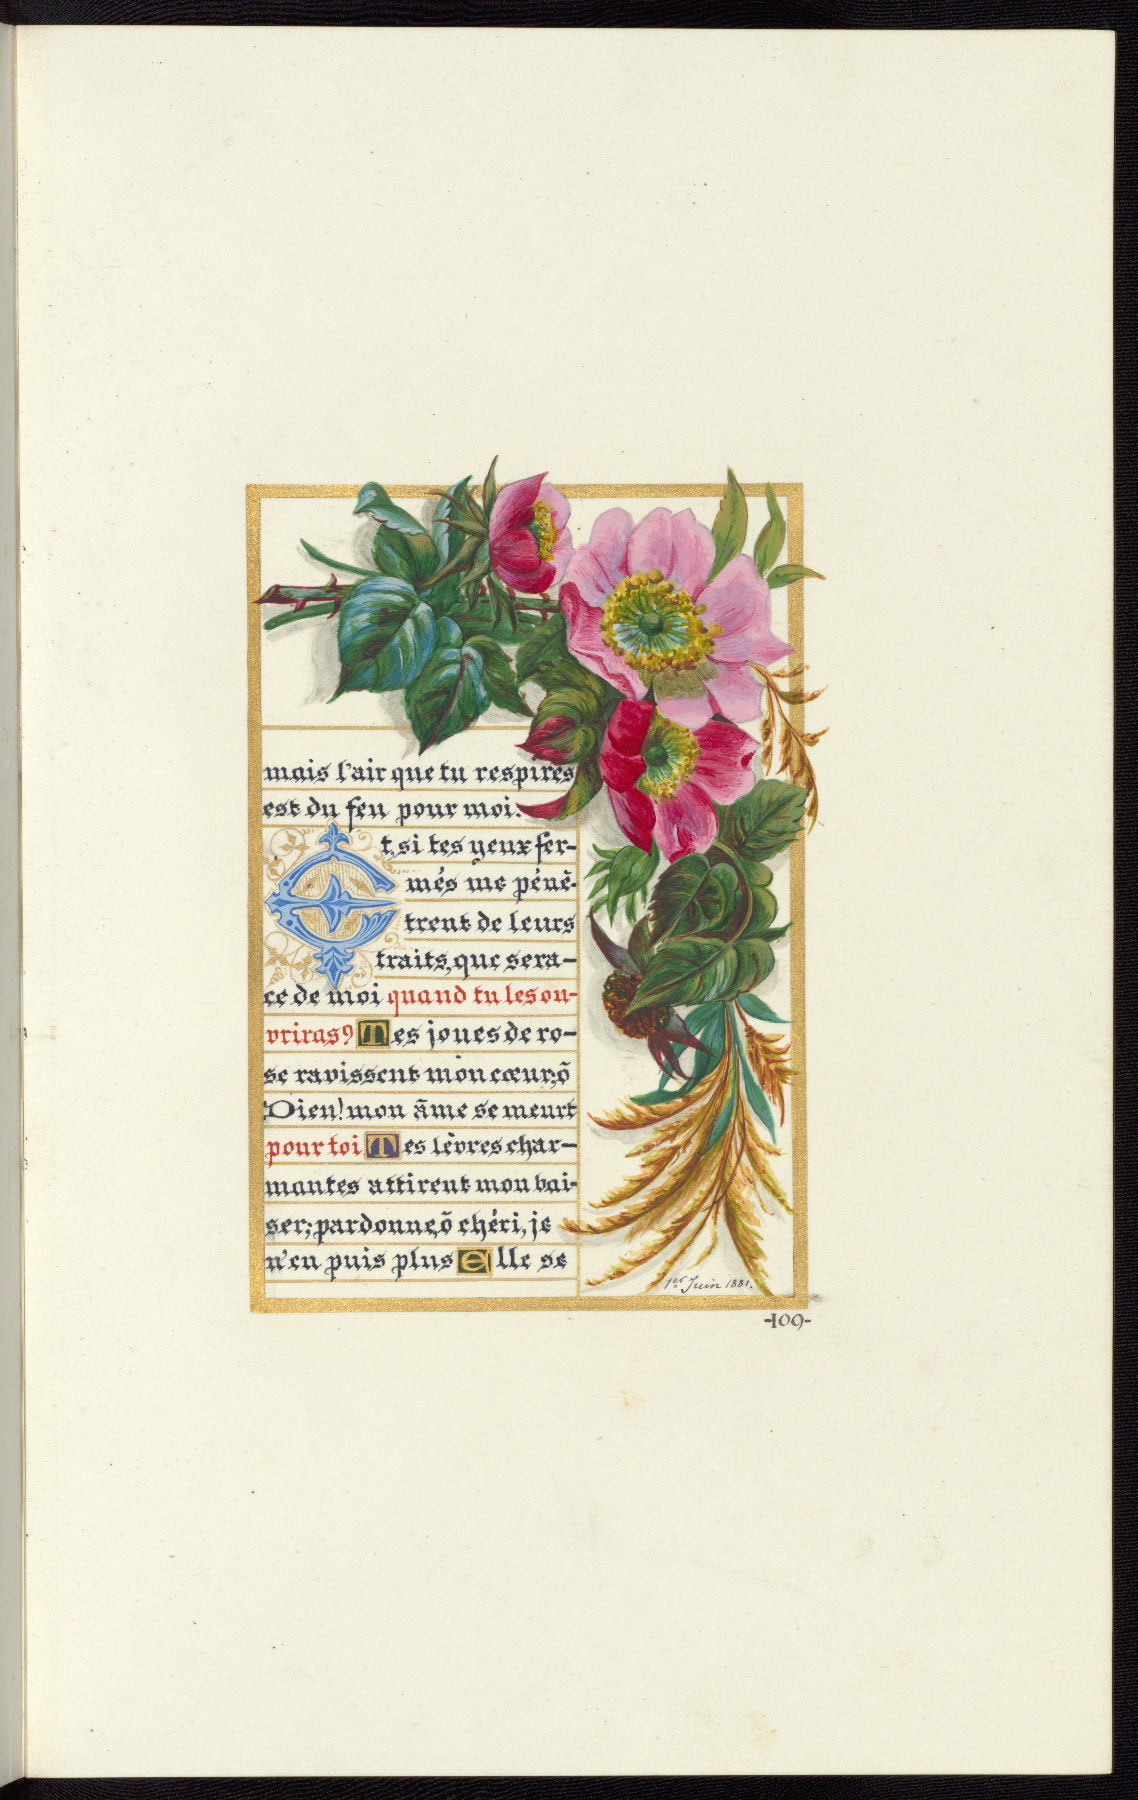 mais l'air que tu respires
est du feu pour moi.
Et, si tes yeux fer-
més me pénè-
trent de leurs
traits, que sera-
ce de moi quand tu les ou-
vriras? Tes joues de ro-
se ravissent mon cœur, ô
Dieu! mon âme se meurt
pour toi Tes lèvres char-
mantes attirent mon bai-
ser; pardonne, ô chéri, je
n'en puis plus Elle se
1er Juin 1881.
-109-